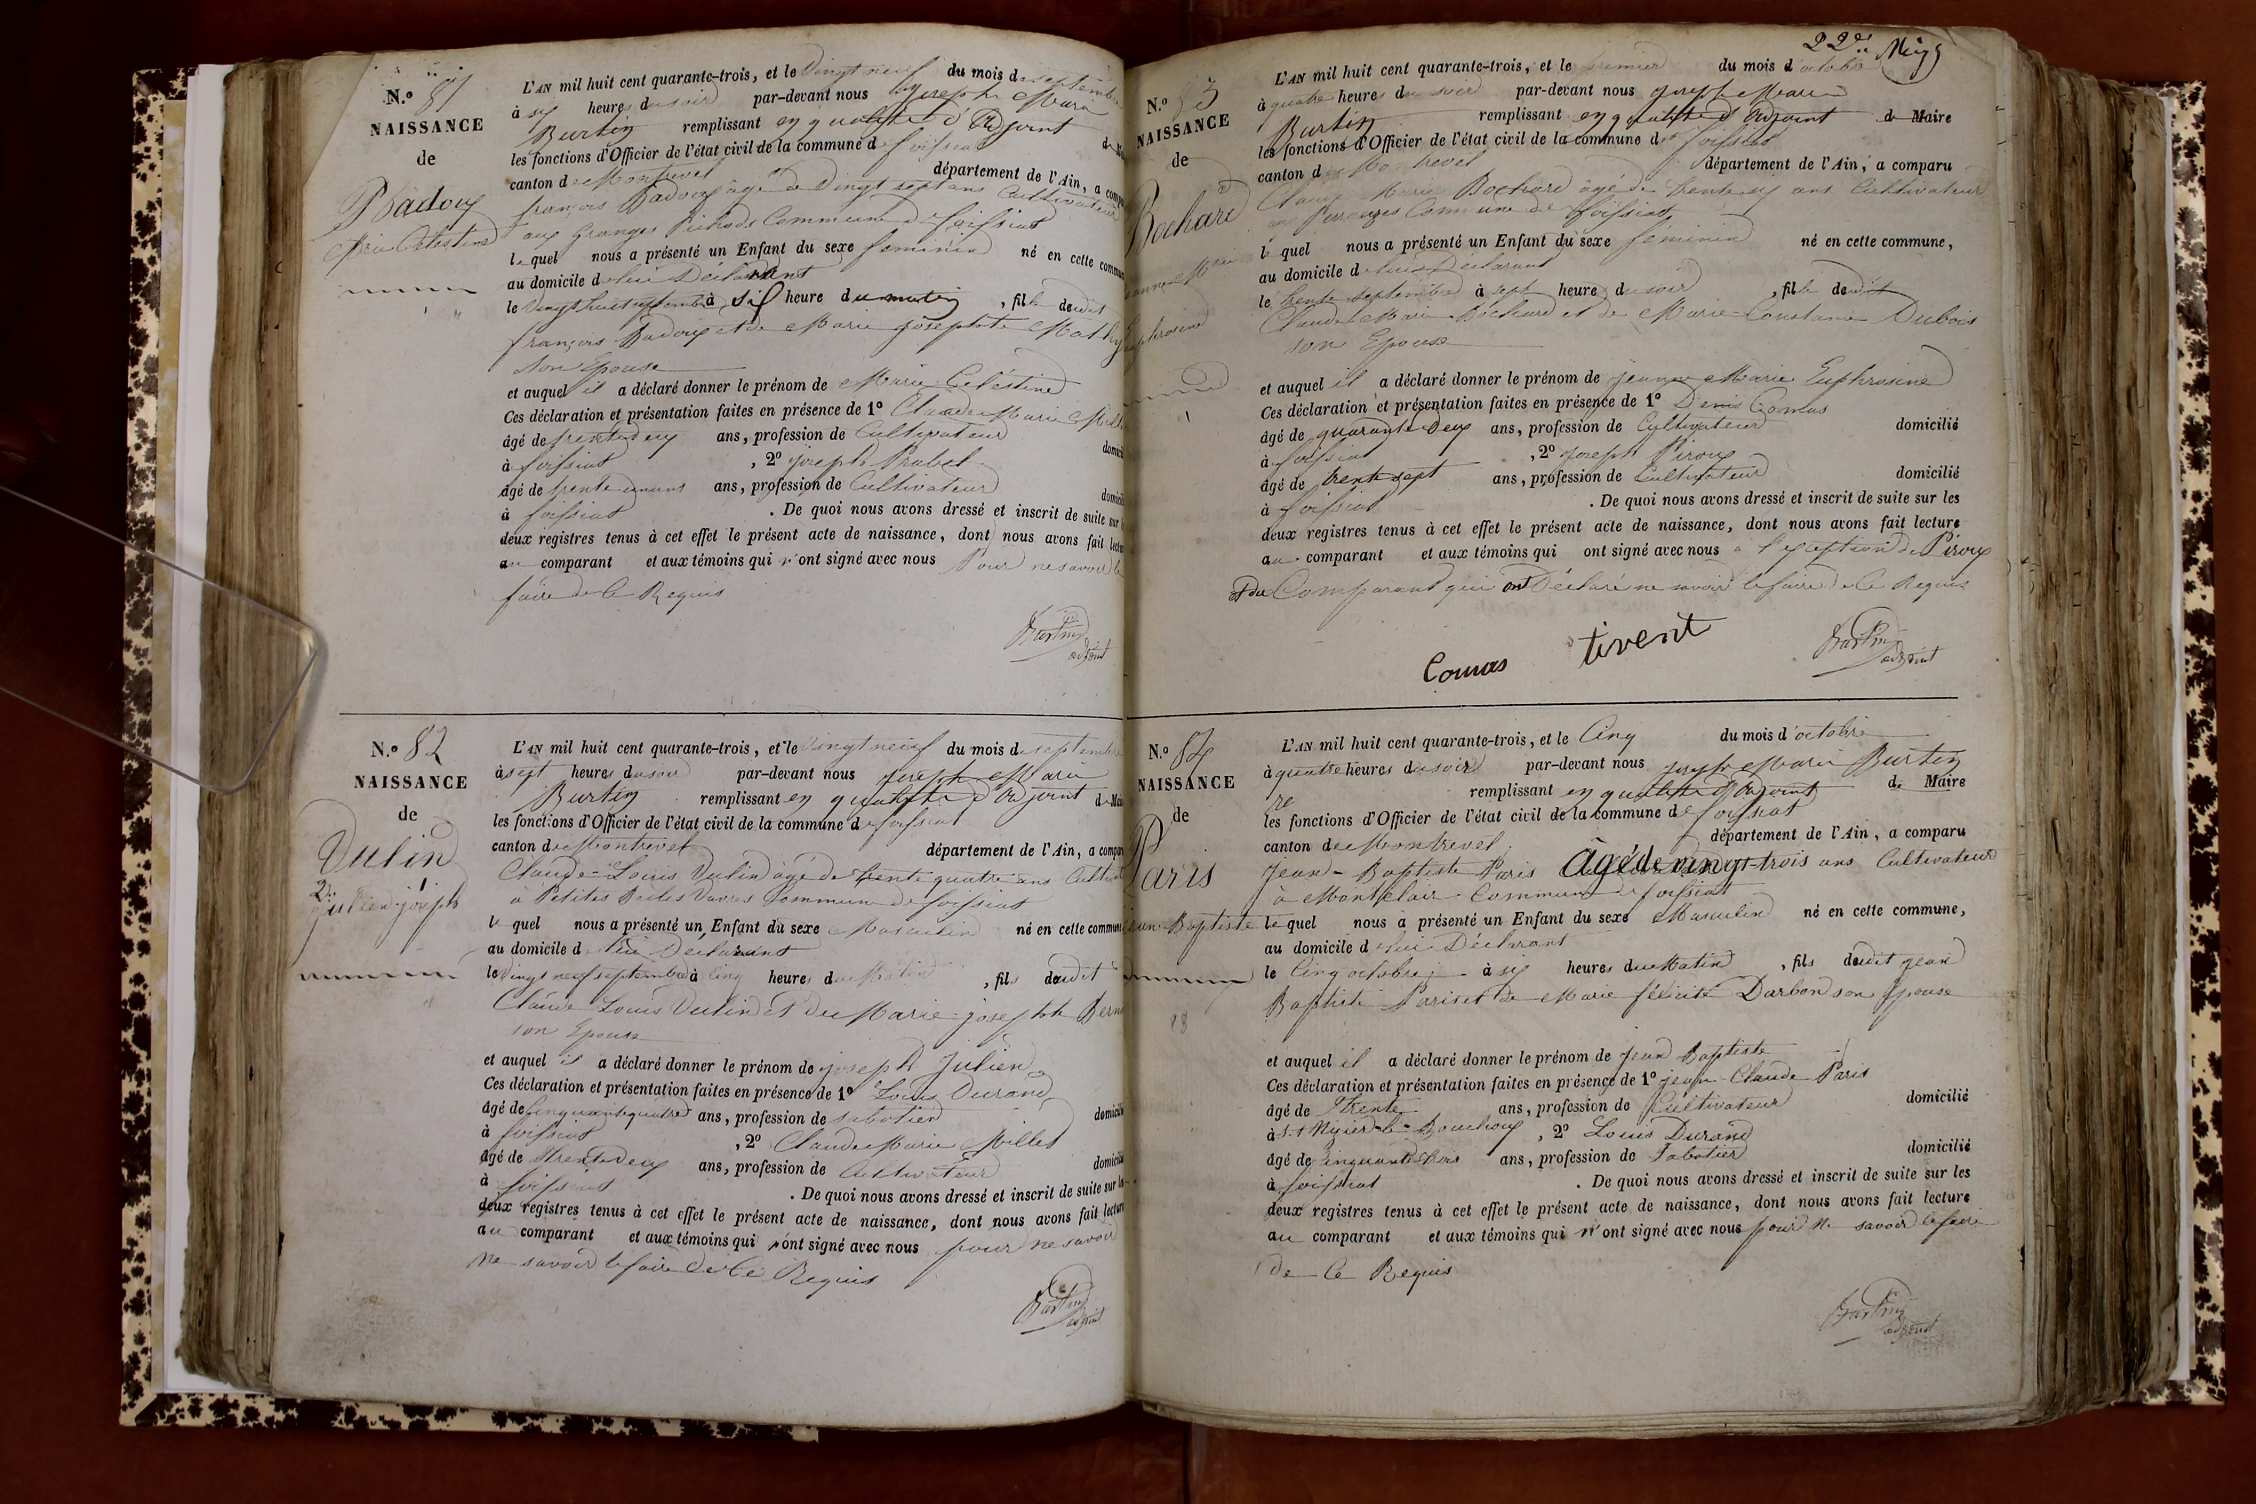 N.º 81
NAISSANCE
de
Badoux
Marie Célestine
L'AN mil huit cent quarante-trois, et le vingt neuf du mois de septembre
à six heures du soir par-devant nous Joseph Marie
Burtin remplissant en qualité d'adjoint de
les fonctions d'Officier de l'état civil de la commune de foissiat
canton de Montrevel département de l'Ain, a
françois Badoux âgé de vingt sept ans Cultivateur
aux Granges Pichods Commune de foissiat
lequel nous a présenté un Enfant du sexe féminin né en cette
au domicile de lui Déclarant
le vingt huit septembre à six heure du matin, fille dudit
françois Badoux et de Marie Josephte
son Epouse
et auquel il a déclaré donner le prénom de Marie Célestine
Ces déclaration et présentation faites en présence de 1º Claude Marie
âgé de trente deux ans, profession de Cultivateur
à foissiat, 2º Joseph
âgé de trente ans, profession de Cultivateur
à foissiat. De quoi nous avons dressé et inscrit de suite sur
deux registres tenus à cet effet le présent acte de naissance, dont nous avons fait
au comparant et aux témoins qui n'ont signé avec nous Pour ne savoir le
faire de Ce Requis
Burtin
adjoint
N.º 82
NAISSANCE
de
Vulin
Julien joseph
L'AN mil huit cent quarante-trois, et le vingt neuf du mois de septembre
à sept heures du soir par-devant nous Joseph Marie
Burtin remplissant en qualité d'adjoint de
les fonctions d'Officier de l'état civil de la commune de foissiat
canton de Montrevel département de l'Ain, a
Claude-Louis Vulin âgé de trente quatre ans
à Petites Commune de foissiat
le quel nous a présenté un Enfant du sexe Masculin né en cette
au domicile de lui Déclarant
le vingt neuf septembre à cinq heures du Matin, fils dudit
Claude Louis Vulin et de Marie-josephte
son Epouse
et auquel il a déclaré donner le prénom de joseph Julien
Ces déclaration et présentation faites en présence de 1º Louis Durand
âgé de cinquante quatre ans, profession de sabotier
à foissiat, 2º Claude Marie Millet
âgé de trente deux ans, profession de Cultivateur
à foissiat. De quoi nous avons dressé et inscrit de suite sur
deux registres tenus à cet effet le présent acte de naissance, dont nous avons fait
au comparant et aux témoins qui n'ont signé avec nous pour ne savoir
ne savoir le faire de Ce Requis
Burtin
adjoint
N.º 83
NAISSANCE
de
Bochard
L'AN mil huit cent quarante-trois, et le premier du mois d'octobre
à quatre heures du soir par-devant nous Joseph Marie
Burtin remplissant en qualité d'adjoint de Maire
les fonctions d'Officier de l'état civil de la commune de foissiat
canton de Montrevel département de l'Ain, a comparu
Claude Marie Bochard âgé de trente six ans Cultivateur
Commune de foissiat
le quel nous a présenté un Enfant du sexe féminin né en cette commune,
au domicile de lui Déclarant
le trente septembre à sept heures du soir, fille dudit
Claude Marie Bochard et de Marie-Constance Dubois
son Epouse
et auquel il a déclaré donner le prénom de jeanne Marie Euphrosine
Ces déclaration et présentation faites en présence de 1º Denis Comas
âgé de quarante deux ans, profession de Cultivateur domicilié
à foissiat, 2º joseph Piroux
âgé de trente sept ans, profession de Cultivateur domicilié
à foissiat. De quoi nous avons dressé et inscrit de suite sur les
deux registres tenus à cet effet le présent acte de naissance, dont nous avons fait lecture
au comparant et aux témoins qui ont signé avec nous à l'exeption de Piroux
et du Comparant qui ont Déclaré ne savoir le faire de Ce Requis
Comas tivent Burtin
adjoint
N.º 84
NAISSANCE
de
Paris
Jean-Baptiste
L'AN mil huit cent quarante-trois, et le Cinq du mois d'octobre
à quatre heures du soir par-devant nous joseph Marie Burtin
remplissant en qualité d'adjoint de Maire
les fonctions d'Officier de l'état civil de la commune de foissiat
canton de Montrevel département de l'Ain, a comparu
Jean-Baptiste Paris Âgé de vingt-trois ans Cultivateur
à Montclair Commune de foissiat
le quel nous a présenté un Enfant du sexe Masculin né en cette commune,
au domicile de lui Déclarant
le Cinq octobre à six heures du Matin, fils dudit jean
Baptiste Paris et de Marie félicité Darbon son Epouse
et auquel il a déclaré donner le prénom de Jean Baptiste
Ces déclaration et présentation faites en présence de 1º jean-Claude Paris
âgé de trente ans, profession de Cultivateur domicilié
à St Nizier-le-Bouchoux, 2º Louis Durand
âgé de cinquante ans, profession de Sabotier domicilié
à foissiat. De quoi nous avons dressé et inscrit de suite sur les
deux registres tenus à cet effet le présent acte de naissance, dont nous avons fait lecture
au comparant et aux témoins qui n'ont signé avec nous pour ne savoir le faire
de Ce Requis
Burtin
adjoint